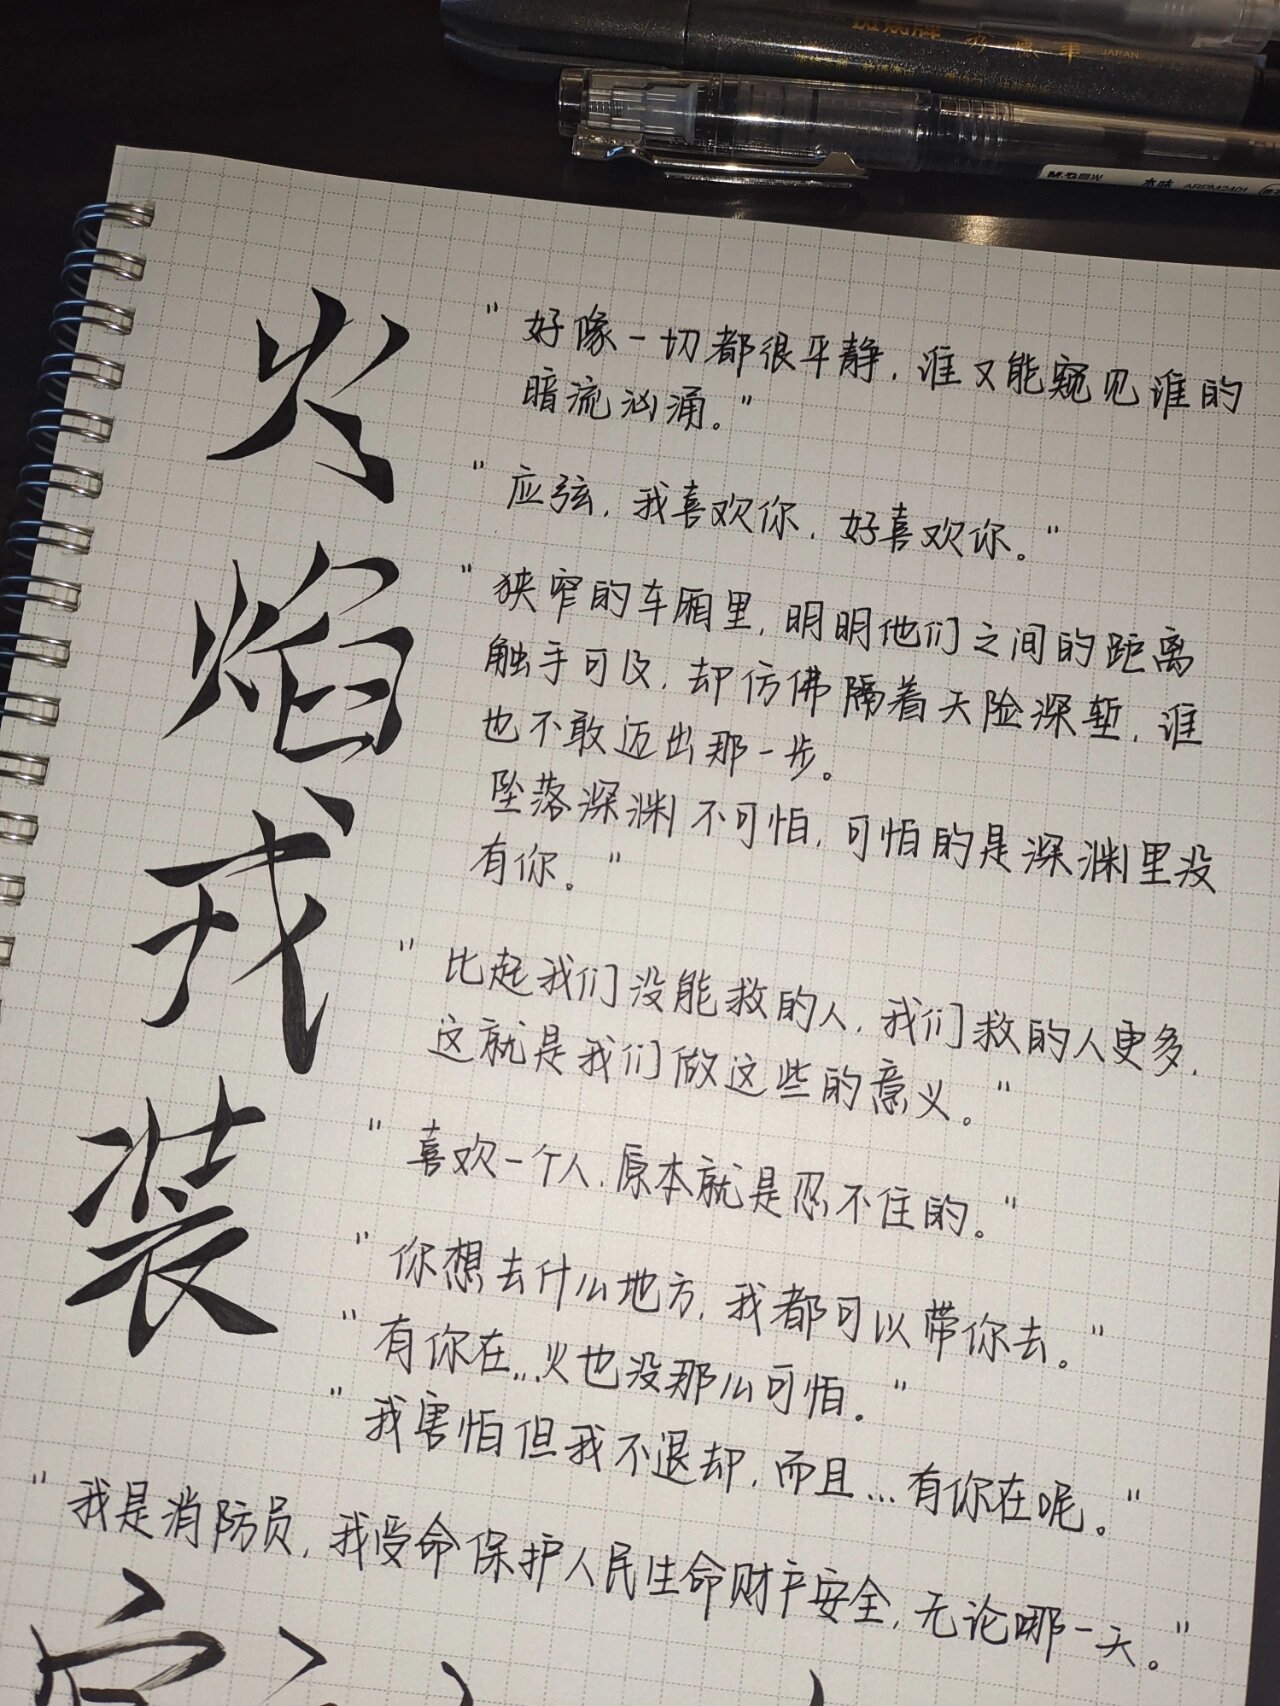 JAPAN
M&G晨光 本味 ARPM2401
火焰戎装
"好像一切都很平静，谁又能窥见谁的
暗流汹涌。"
"应弦，我喜欢你，好喜欢你。"
"狭窄的车厢里，明明他们之间的距离
触手可及，却仿佛隔着天险深堑，谁
也不敢迈出那一步。
坠落深渊不可怕，可怕的是深渊里没
有你。"
"比起我们没能救的人，我们救的人更多，
这就是我们做这些的意义。"
"喜欢一个人，原本就是忍不住的。"
"你想去什么地方，我都可以带你去。"
"有你在...火也没那么可怕。"
"我害怕但我不退却，而且...有你在呢。"
"我是消防员，我受命保护人民生命财产安全，无论哪一天。"